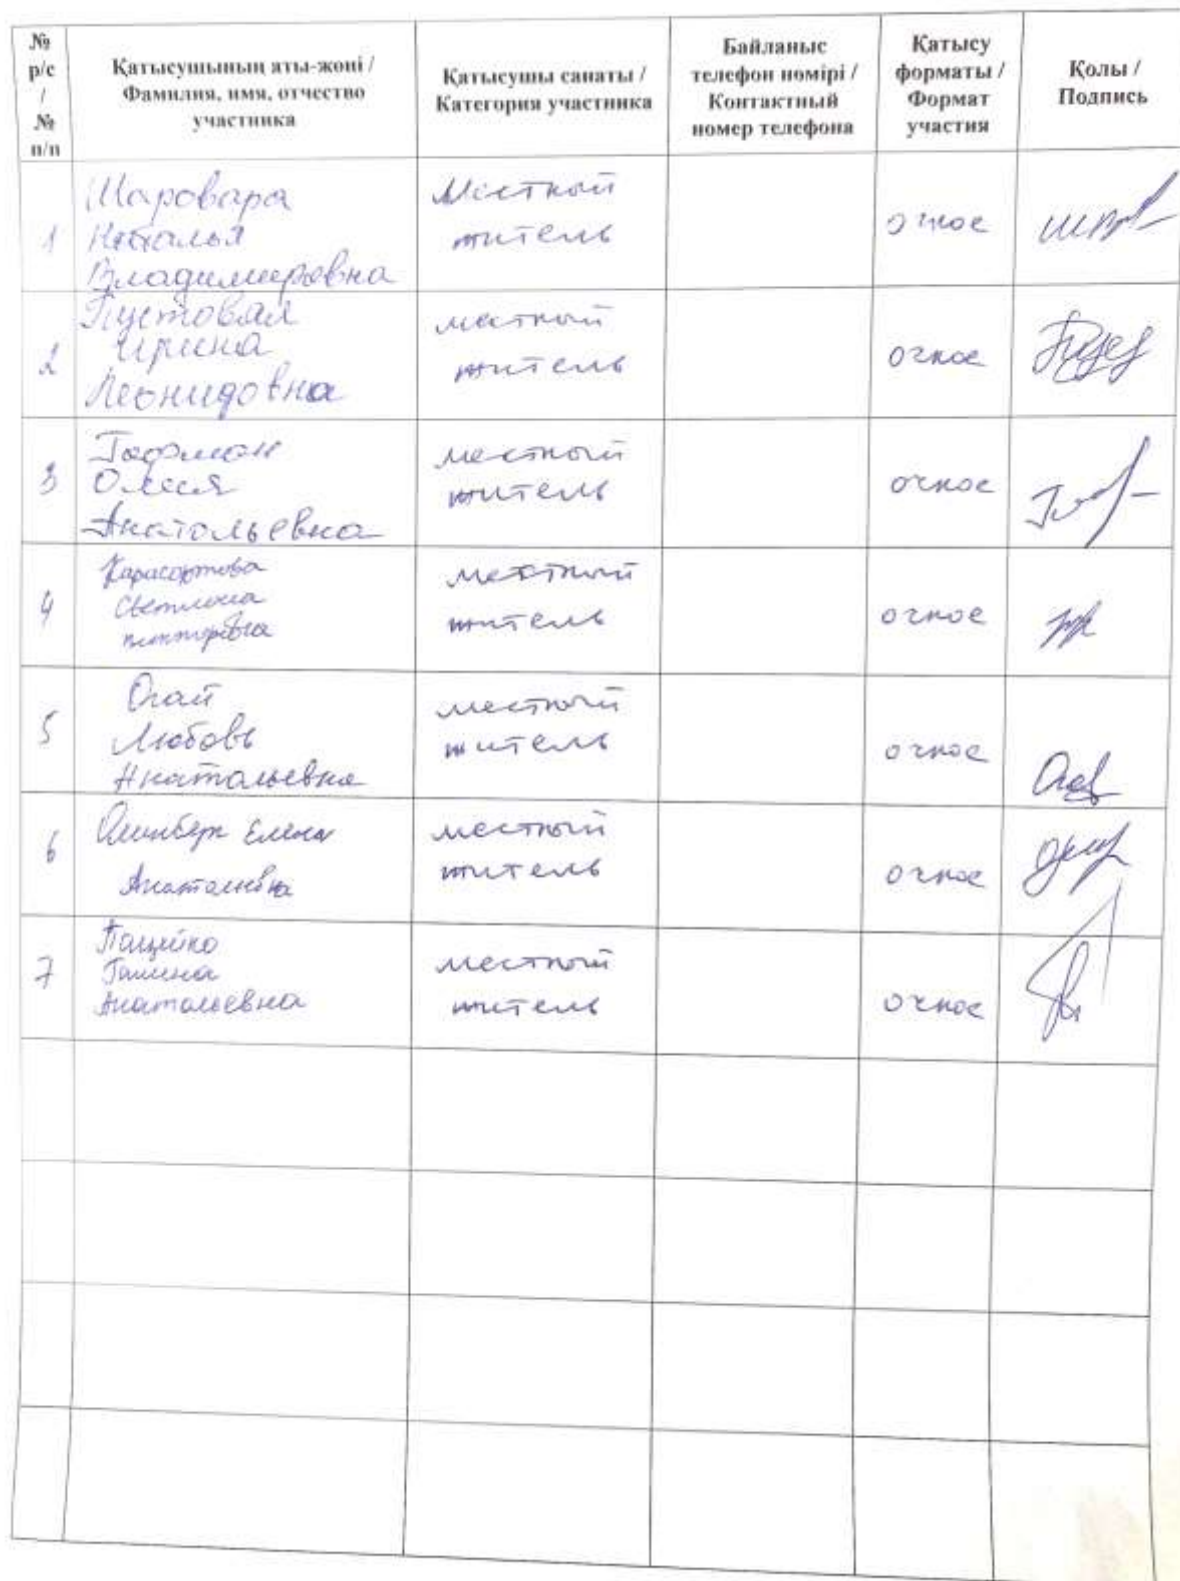 №
р/с
/
№
п/п
Қатысушының аты-жөні /
Фамилия, имя, отчество
участника
Қатысушы санаты /
Категория участника
Байланыс
телефон нөмірі /
Контактный
номер телефона
Қатысу
форматы /
Формат
участия
Қолы /
Подпись
1
Шаровара
Наталья
Владимировна
Местный
житель
очное
2
Пустовая
Ирина
Леонидовна
местный
житель
очное
3
Гофман
Олеся
Анатольевна
местный
житель
очное
4
Светлана
местный
житель
очное
5
Огай
Любовь
Анатольевна
местный
житель
очное
6
Елена
Анатольевна
местный
житель
очное
7
Пацейко
Галина
Анатольевна
местный
житель
очное